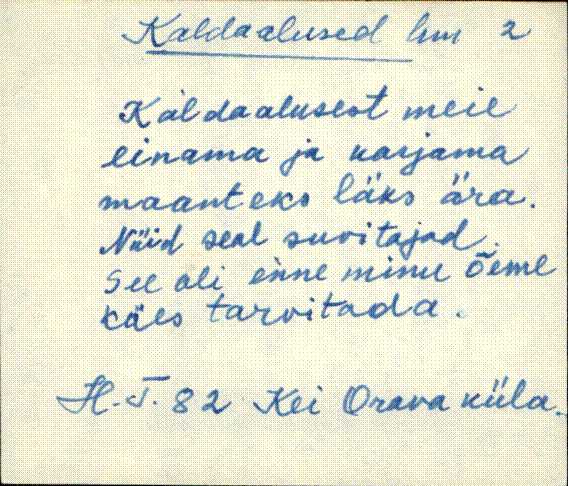 Kaldaalused hm 2
Kaldaalusest meie
einama ja karjama
maanteks läks ära.
Nüid seal suvitajad.
See oli enne minu õeme
käes tarvitada.
H.-T. 82 Kei Orava küla.